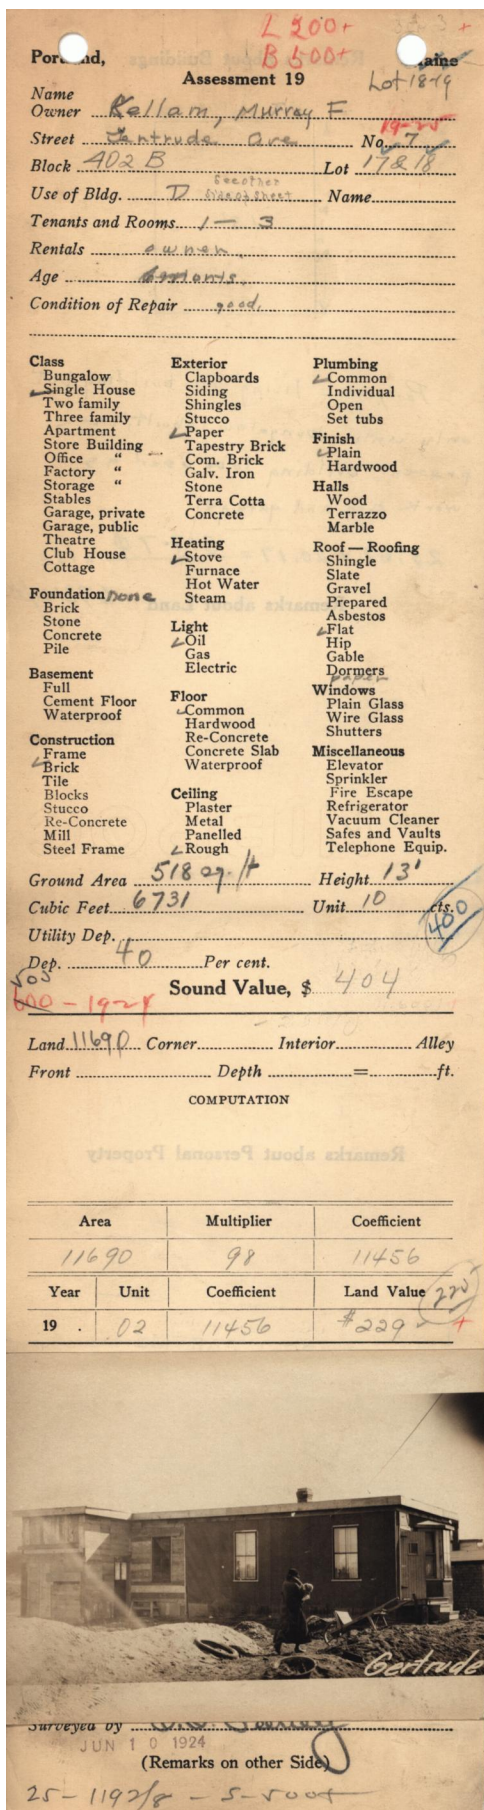 L 200+
B 500+
Portland, Maine
Assessment 19
Lot 18-19
Name
Owner Kellam, Murray F
19-25
Street Gertrude Ave No. 7
Block 402 B Lot 17 & 18
See other
Use of Bldg. D Side of sheet Name
Tenants and Rooms 1 - 3
Rentals owner
Age 6 months.
Condition of Repair good.
Class
Bungalow
Single House
Two family
Three family
Apartment
Store Building
Office "
Factory "
Storage "
Stables
Garage, private
Garage, public
Theatre
Club House
Cottage
Foundation none
Brick
Stone
Concrete
Pile
Basement
Full
Cement Floor
Waterproof
Construction
Frame
Brick
Tile
Blocks
Stucco
Re-Concrete
Mill
Steel Frame
Exterior
Clapboards
Siding
Shingles
Stucco
Paper
Tapestry Brick
Com. Brick
Galv. Iron
Stone
Terra Cotta
Concrete
Heating
Stove
Furnace
Hot Water
Steam
Light
Oil
Gas
Electric
Floor
Common
Hardwood
Re-Concrete
Concrete Slab
Waterproof
Ceiling
Plaster
Metal
Panelled
Rough
Plumbing
Common
Individual
Open
Set tubs
Finish
Plain
Hardwood
Halls
Wood
Terrazzo
Marble
Roof — Roofing
Shingle
Slate
Gravel
Prepared
Asbestos
Flat
Hip
Gable
Dormers
paper
Windows
Plain Glass
Wire Glass
Shutters
Miscellaneous
Elevator
Sprinkler
Fire Escape
Refrigerator
Vacuum Cleaner
Safes and Vaults
Telephone Equip.
Ground Area 518 sq. ft Height 13'
Cubic Feet 6731 Unit 10 cts.
400
Utility Dep.
Dep. 40 Per cent.
505
Sound Value, $ 404
600 - 1924
Land 11690 Corner Interior Alley
Front Depth = ft.
COMPUTATION
Remarks about Personal Property
Area Multiplier Coefficient
11690 98 11456
Year Unit Coefficient Land Value 225
19 . 02 11456 #229 +
Gertrude
Surveyed by
JUN 10 1924
(Remarks on other Side)
25- 1192/8 - S- 500+